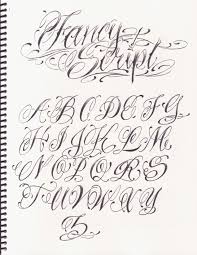 Fancy
Script
A B C D E F G
H I J K L M
N O P Q R S
T U V W X Y
Z